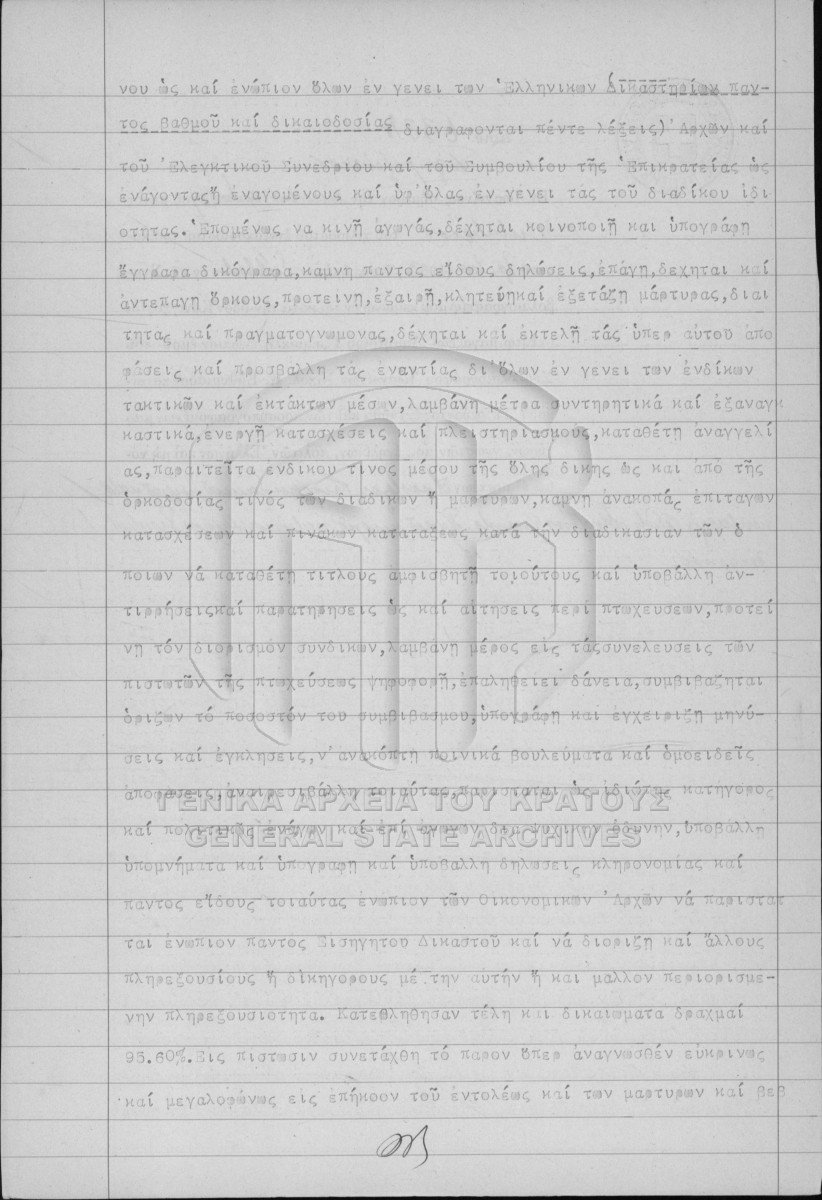 νου ὡς καί ἐνώπιον ὅλων ἐν γενει των Ἑλληνικων Δικαστηρίων παν-
τος βαθμοῦ καί δικαιοδοσίας διαγραφονται πέντε λέξεις) Ἀρχῶν καί
τοῦ Ἐλεγκτικοῦ Συνεδριου καί τοῦ Συμβουλίου τῆς Ἐπικρατείας ὡς
ἐνάγοντας ἤ ἐναγομένους καί ὑφ' ὅλας ἐν γένει τάς τοῦ διαδίκου ἰδι
οτητας. Ἑπομένως να κινῇ ἀγωγάς, δέχηται κοινοποιῇ και ὑπογράφῃ
ἔγγραφα δικόγραφα, καμνη παντος εἴδους δηλώσεις, ἐπάγῃ, δεχηται καί
ἀντεπαγη ὅρκους, προτεινῃ, ἐξαιρῇ, κλητεύῃ καί ἐξετάζῃ μάρτυρας, διαι
τητας καί πραγματογνωμονας, δέχηται καί ἐκτελῇ τάς ὑπερ αὐτου ἀπο
φάσεις καί προσβαλλη τάς ἐναντίας δι' ὅλων ἐν γενει των ἐνδίκων
τακτικῶν καί ἐκτάκτων μέσ ν, λαμβάνη μέτρα συντηρητικά καί ἐξαναγκ
καστικά, ἐνεργῇ κατασχέσεις καί πλειστηριασμους, καταθέτῃ ἀναγγελί
ας, παραιτεῖται ἐνδικου τινος μέσου τῆς ὅλης δικης ὡς και ἀπό τῆς
ὁρκοδοσίας τινός τῶν διαδικων ἤ μαρτυρων, καμνη ἀνακοπάς ἐπιταγων
κατασχέσεων καί πινάκων κατατάξεως κατά τήν διαδικασιαν τῶν ὁ
ποιων νά καταθέτῃ τιτλους ἀμφισβητῇ τοιούτους καί ὑποβάλλη ἀν-
τιρρήσεις καί παρατηρησεις ὡς καί αἰτήσεις περί πτωχευσεων, προτεί
νῃ τόν διορισμόν συνδικων, λαμβάνῃ μέρος εἰς τάς συνελευσεις τῶν
πιστωτῶν τῆς πτωχεύσεως ψηφοφορῇ, ἐπαληθευει δάνεια, συμβιβαζηται
ὁριζων τό ποσοστόν του συμβιβασμου, ὑπογράφῃ και ἐγχειριζῃ μηνύ-
σεις καί ἐγκλησεις, ν' ἀνακόπτῃ ποινικά βουλεύματα καί ὁμοειδεῖς
ἀποφάσεις, ἀναιρεσιβάλλῃ τοιαύτας, παρισταται ὡς ἰδιώτης κατήγορος
ΓΕΝΙΚΑ ΑΡΧΕΙΑ ΤΟΥ ΚΡΑΤΟΥΣ
καί πολιτικῶς ἐνάγων καί ἐπί ψυχικην ὀδυνην, ὑποβάλλῃ
GENERAL STATE ARCHIVES
ὑπομνήματα καί ὑπογραφῃ καί ὑποβαλλη δηλωσεις κληρονομίας καί
παντος εἴδους τοιαύτας ἐνωπιον τῶν Οἰκονομικων Ἀρχῶν νά παριστατ
ται ἐνωπιον παντος Εἰσηγητου Δικαστοῦ καί νά διοριζῃ καί ἄλλους
πληρεξουσίους ἤ δικηγορους μέ την αὐτήν ἤ και μαλλον περιορισμε-
νην πληρεξουσιοτητα. Κατεβληθησαν τέλη και δικαιωματα δραχμαί
95.60%. Εἰς πιστωσιν συνετάχθη τό παρον ὅπερ ἀναγνωσθέν εὐκρινως
καί μεγαλοφώνως εἰς ἐπήκοον τοῦ ἐντολέως καί των μαρτυρων καί βεβ